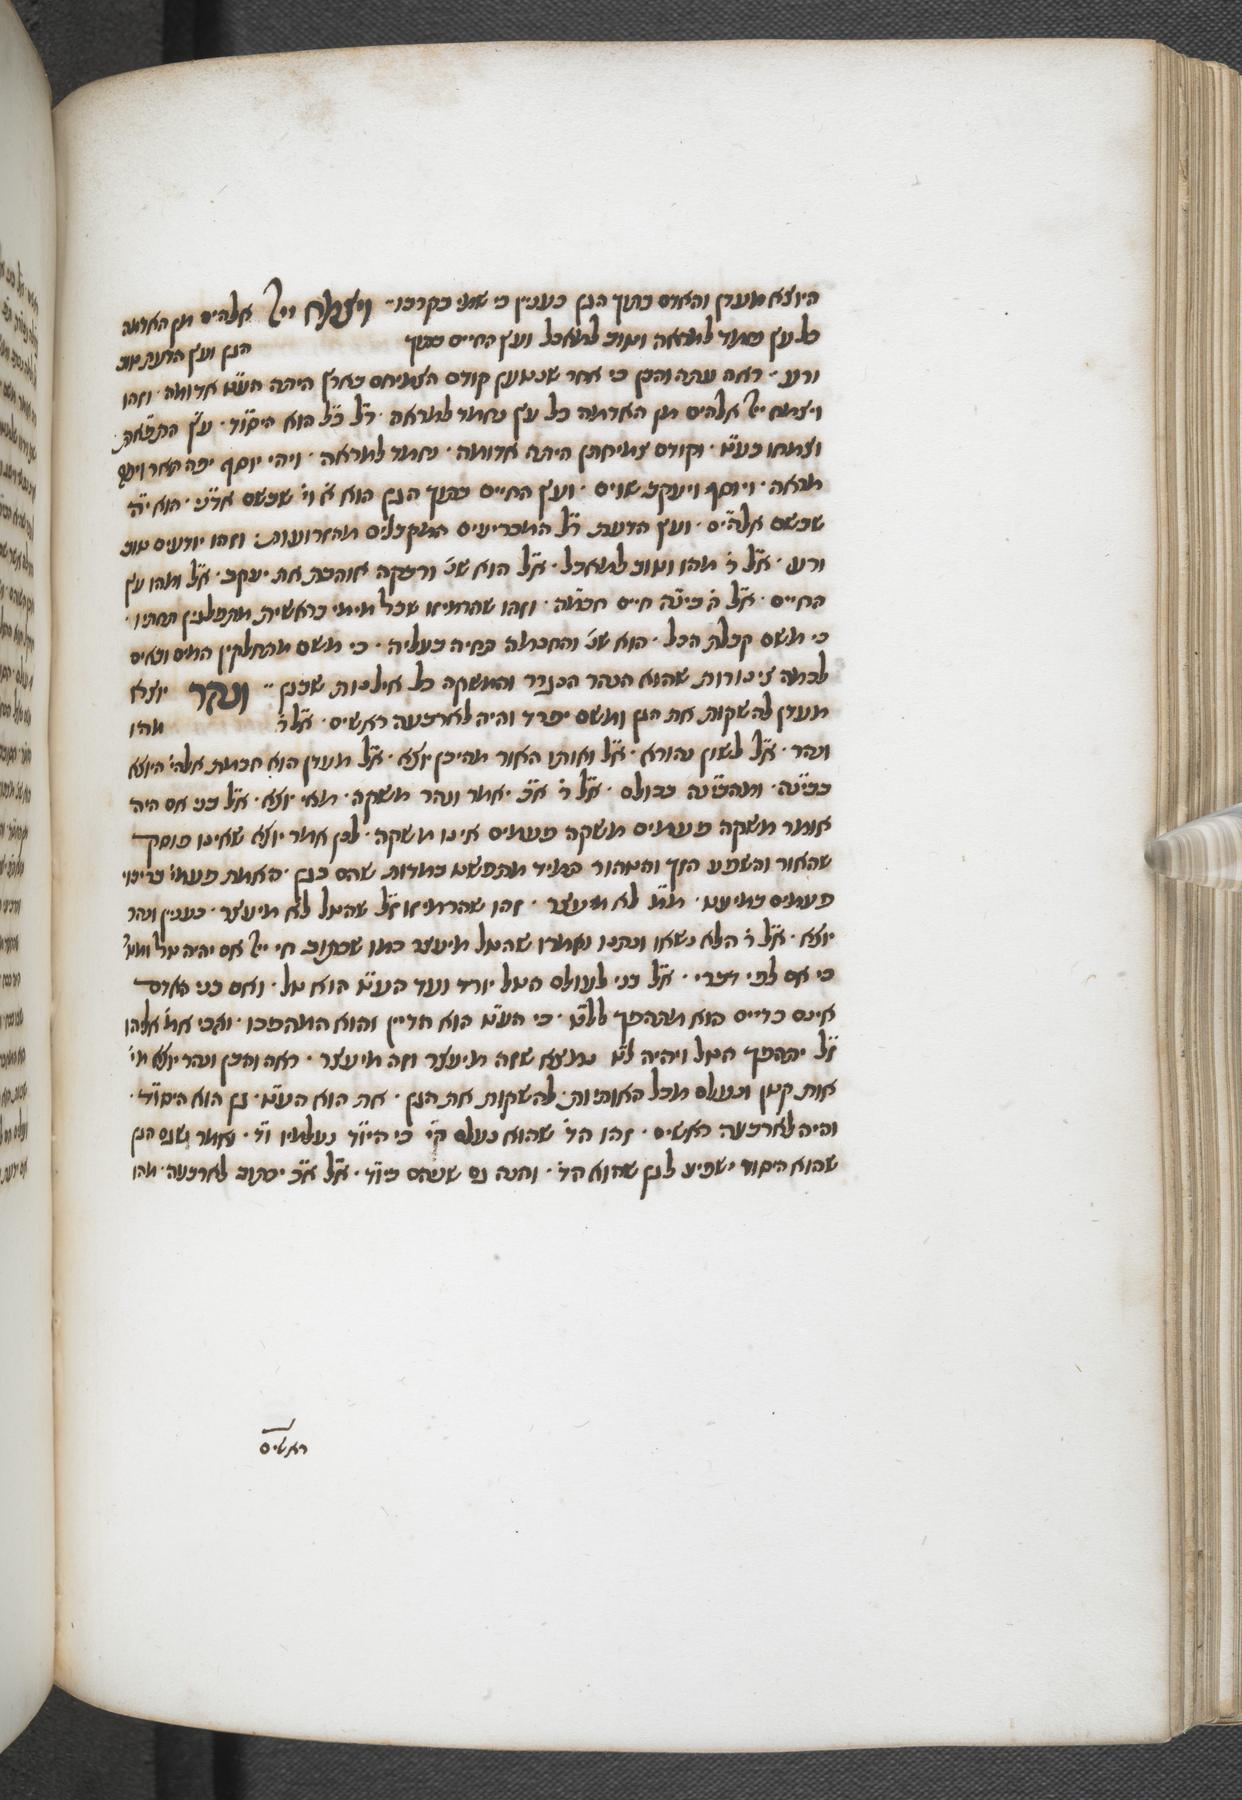 היוצא מעדן והאדם בתוך הגן כענין כי שמי בקרבו ויצמח ייי אלהים מן האדמה
כל עץ נחמד למראה וטוב למאכל ועץ החיים בתוך הגן ועץ הדעת טוב
ורע ראה עתה והבן כי אחר שנטען קודם הצמיחם בארץ היתה העט׳ אדומה וזהו
ויצמח ייי אלהים מן האדמה כל עץ נחמד למראה ר״ל כ״ל הוא היסוד עץ התפארת
וצמחו בעט׳ וקודם צמיחתן היתה אדומה נחמד למראה ויהי יוסף יפה תאר ויפה
מראה ויוסף ויעקב שוים ועץ החיים בתוך הגן הוא א׳ וי׳ שבשם אדני הוא י״ה
שבשם אלהים ועץ הדעת ר״ל המכריעים המקבלים מהזרועות וזהו יודעים טוב
ורע א״ל ר׳ מהו וטוב למאכל א״ל הוא שנ׳ ורבקה אוהבת את יעקב א״ל ומהו עץ
החיים א״ל ה׳ בינה חיים חכמה וזהו שהרמיזו שכל מימי בראשית מתפלגין תחתיו
כי משם קבלת הכל הוא שנ׳ והחכמה תחיה בעליה כי משם מתחלקין המים ובאים
לכמה צינורות שהוא הנהר הנגרר והמשקה כל אילנות שבגן ונהר יוצא
מעדן להשקות את הגן ומשם יפרד והיה לארבעה ראשים א״ל ר׳ מהו
ונהר א״ל לשון נהורא א״ל ואותו האור מהיכן יוצא א״ל מעדן הוא חכמת אלהי׳ היוצא
בבינה ומהבינה בכולם א״ל ר׳ א״כ יאמר ונהר משקה מאי יוצא א״ל בני אם היה
אומר משקה פעמים משקה פעמים אינו משקה לכן אמר יוצא שאינו פוסק
שהאור והשפע הזך והטהור תמיד מתפשט במדות שהם בגן האמת פעמי׳ בריבוי
פעמים במיעוט מ״מ לא מיעצר וזהו שהרמיזו ז״ל שהטל לא מיעצר כענין ונהר
יוצא א״ל ר׳ הלא נשאו ונתנו ואמרו שהטל מיעצר כמו שכתוב חי ייי אם יהיה טל ומט׳
כי אם לפי דברי א״ל בני לעולם הטל יורד ועד העט׳ הוא טל ואם בני האדם
אינם כדיים הוא מתהפך לל״ט כי העט׳ הוא הדיין והוא המהפכו ולכי את׳ אליהו
ז״ל יתהפך הטל ויהיה ל״ט נמצא שזה מיעצר וזה מיעצר ראה והבן ונהר יוצא מי׳
אות קטן ונעלם מכל האותיות להשקות את הגן את הוא העט׳ גן הוא היסוד
והיה לארבעה ראשים וזהו הד׳ שהוא נעלם ה״י כי היו״ד נעלמו ו״ד ואמר ושם הגן
שהוא היסוד ישפיע לגן שהוא הד׳ והנה גם שניהם ביו״ד א״ל א״כ יכתוב לארבעה מהו
ראשים